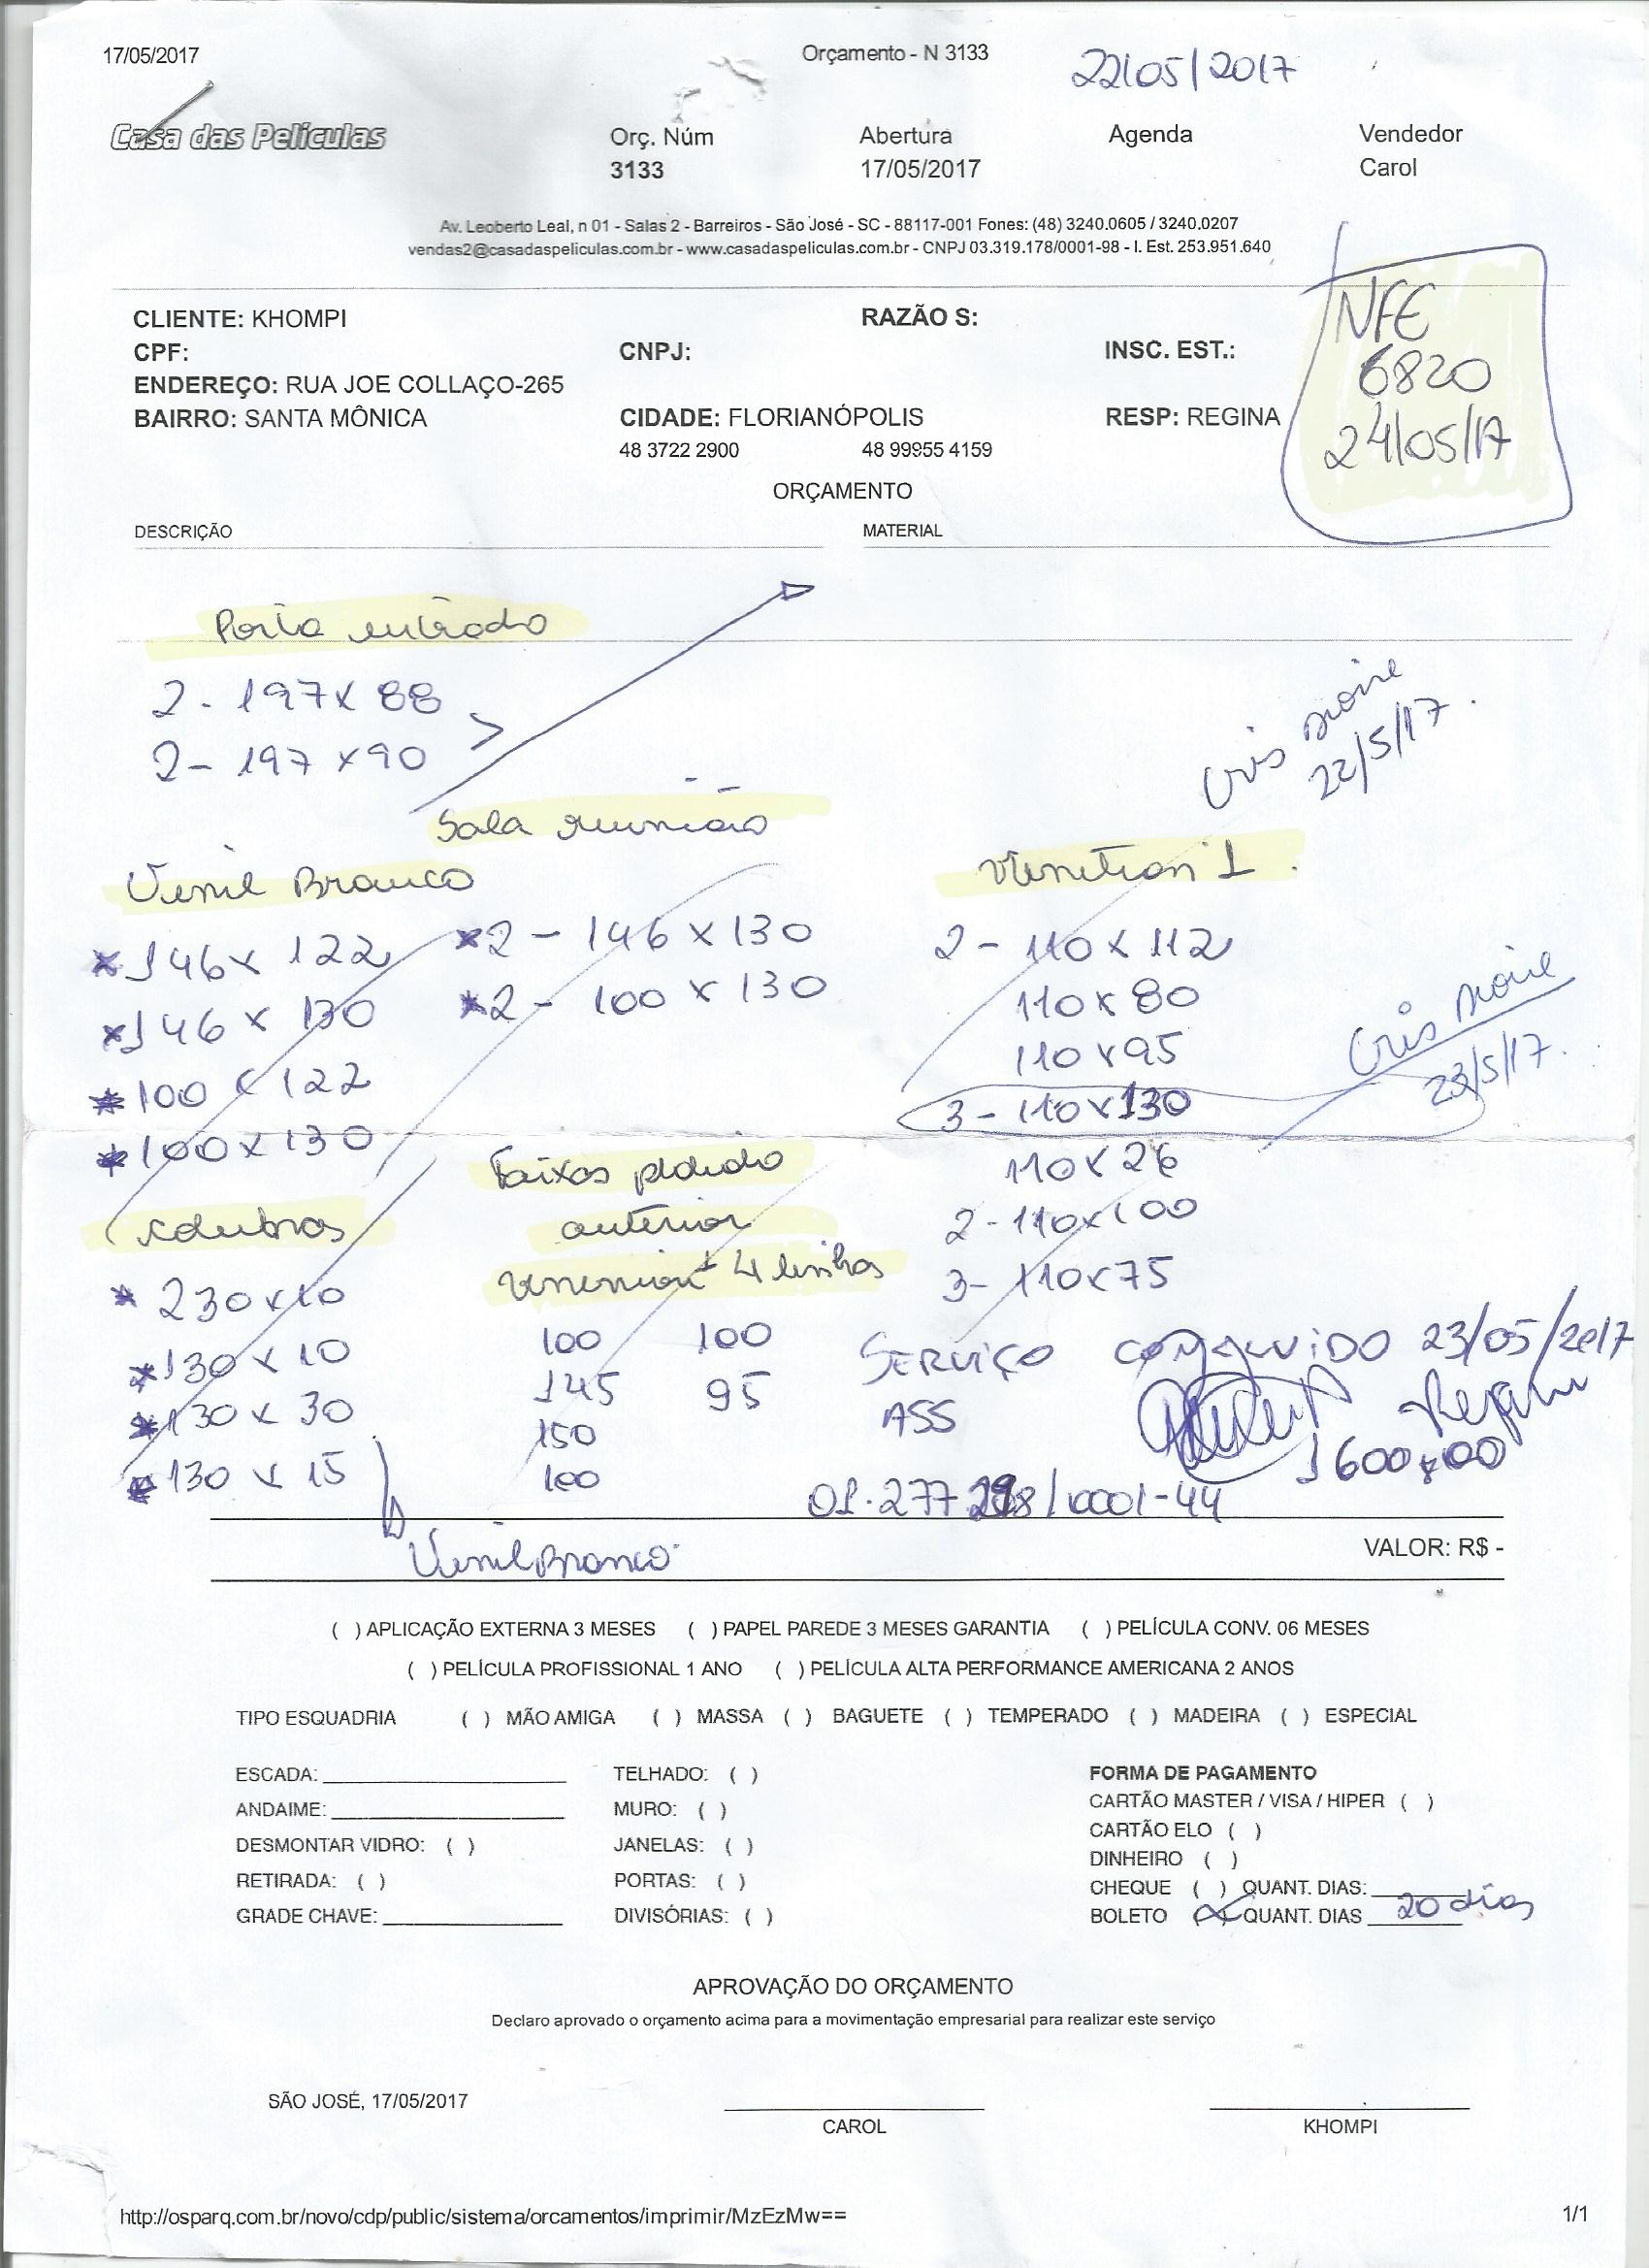 17/05/2017
Orçamento - N 3133
22/05/2017
Casa das Películas
Orç. Núm
3133
Abertura
17/05/2017
Agenda
Vendedor
Carol
Av. Leoberto Leal, n 01 - Salas 2 - Barreiros - São José - SC - 88117-001 Fones: (48) 3240.0605 / 3240.0207
vendas2@casadaspeliculas.com.br - www.casadaspeliculas.com.br - CNPJ 03.319.178/0001-98 - I. Est. 253.951.640
NFE
6820
24/05/17
CLIENTE: KHOMPI
RAZÃO S:
CPF:
CNPJ:
INSC. EST.:
ENDEREÇO: RUA JOE COLLAÇO-265
BAIRRO: SANTA MÔNICA
CIDADE: FLORIANÓPOLIS
RESP: REGINA
48 3722 2900
48 99955 4159
ORÇAMENTO
DESCRIÇÃO
MATERIAL
Porta entrada
2 - 197 x 88
2 - 197 x 90
Cris
22/5/17.
Sala reunião
Vinil Branco
* 146 x 122
* 146 x 130
* 100 x 122
* 100 x 130
* 2 - 146 x 130
* 2 - 100 x 130
Venetian 1
2 - 110 x 112
110 x 80
110 x 95
3 - 110 x 130
110 x 26
2 - 110 x 100
3 - 110 x 75
Cris
23/5/17.
* 230 x 10
* 130 x 10
* 130 x 30
* 130 x 15
Faixas pedido
anterior
4 linhas
100 100
145 95
150
100
SERVIÇO 23/05/2017
ASS
Regina
1600,00
Vinil Branco
VALOR: R$ -
( ) APLICAÇÃO EXTERNA 3 MESES ( ) PAPEL PAREDE 3 MESES GARANTIA ( ) PELÍCULA CONV. 06 MESES
( ) PELÍCULA PROFISSIONAL 1 ANO ( ) PELÍCULA ALTA PERFORMANCE AMERICANA 2 ANOS
TIPO ESQUADRIA ( ) MÃO AMIGA ( ) MASSA ( ) BAGUETE ( ) TEMPERADO ( ) MADEIRA ( ) ESPECIAL
ESCADA:
ANDAIME:
DESMONTAR VIDRO: ( )
RETIRADA: ( )
GRADE CHAVE:
TELHADO: ( )
MURO: ( )
JANELAS: ( )
PORTAS: ( )
DIVISÓRIAS: ( )
FORMA DE PAGAMENTO
CARTÃO MASTER / VISA / HIPER ( )
CARTÃO ELO ( )
DINHEIRO ( )
CHEQUE ( ) QUANT. DIAS:
BOLETO (x) QUANT. DIAS 20 dias
APROVAÇÃO DO ORÇAMENTO
Declaro aprovado o orçamento acima para a movimentação empresarial para realizar este serviço
SÃO JOSÉ, 17/05/2017
CAROL
KHOMPI
http://osparq.com.br/novo/cdp/public/sistema/orcamentos/imprimir/MzEzMw==
1/1